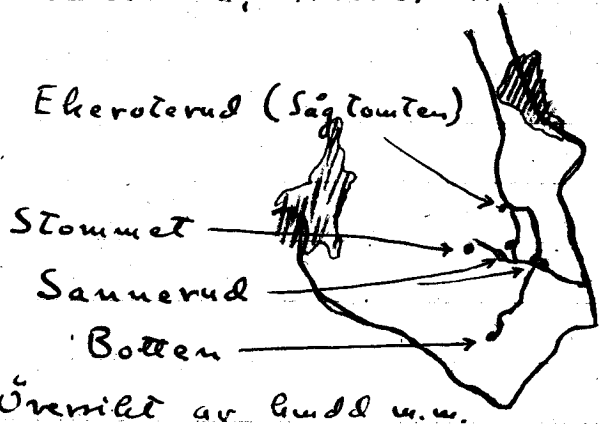 Ekeroterud (Sågtomten)
Stommet
Sannerud
Botten
Översikt av m.m.